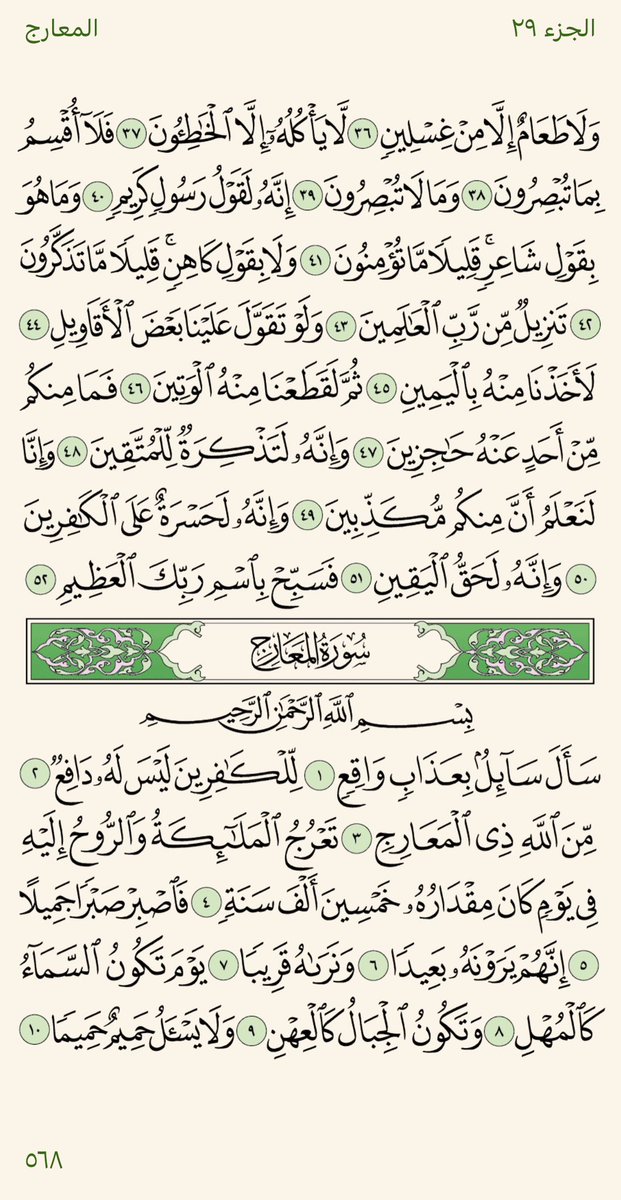 الجزء ٢٩
المعارج
وَلَا طَعَامٌ إِلَّا مِنْ غِسْلِينٍ ٣٦ لَّا يَأْكُلُهُۥٓ إِلَّا ٱلْخَٰطِـُٔونَ ٣٧ فَلَآ أُقْسِمُ
بِمَا تُبْصِرُونَ ٣٨ وَمَا لَا تُبْصِرُونَ ٣٩ إِنَّهُۥ لَقَوْلُ رَسُولٍ كَرِيمٍ ٤٠ وَمَا هُوَ
بِقَوْلِ شَاعِرٍ ۚ قَلِيلًا مَّا تُؤْمِنُونَ ٤١ وَلَا بِقَوْلِ كَاهِنٍ ۚ قَلِيلًا مَّا تَذَكَّرُونَ
٤٢ تَنزِيلٌ مِّن رَّبِّ ٱلْعَٰلَمِينَ ٤٣ وَلَوْ تَقَوَّلَ عَلَيْنَا بَعْضَ ٱلْأَقَاوِيلِ ٤٤
لَأَخَذْنَا مِنْهُ بِٱلْيَمِينِ ٤٥ ثُمَّ لَقَطَعْنَا مِنْهُ ٱلْوَتِينَ ٤٦ فَمَا مِنكُم
مِّنْ أَحَدٍ عَنْهُ حَٰجِزِينَ ٤٧ وَإِنَّهُۥ لَتَذْكِرَةٌ لِّلْمُتَّقِينَ ٤٨ وَإِنَّا
لَنَعْلَمُ أَنَّ مِنكُم مُّكَذِّبِينَ ٤٩ وَإِنَّهُۥ لَحَسْرَةٌ عَلَى ٱلْكَٰفِرِينَ
٥٠ وَإِنَّهُۥ لَحَقُّ ٱلْيَقِينِ ٥١ فَسَبِّحْ بِٱسْمِ رَبِّكَ ٱلْعَظِيمِ ٥٢
سُورَةُ المَعَارِجِ
بِسْمِ ٱللَّهِ ٱلرَّحْمَٰنِ ٱلرَّحِيمِ
سَأَلَ سَآئِلٌۢ بِعَذَابٍ وَاقِعٍ ١ لِّلْكَٰفِرِينَ لَيْسَ لَهُۥ دَافِعٌ ٢
مِّنَ ٱللَّهِ ذِى ٱلْمَعَارِجِ ٣ تَعْرُجُ ٱلْمَلَٰٓئِكَةُ وَٱلرُّوحُ إِلَيْهِ
فِى يَوْمٍ كَانَ مِقْدَارُهُۥ خَمْسِينَ أَلْفَ سَنَةٍ ٤ فَٱصْبِرْ صَبْرًا جَمِيلًا
٥ إِنَّهُمْ يَرَوْنَهُۥ بَعِيدًا ٦ وَنَرَىٰهُ قَرِيبًا ٧ يَوْمَ تَكُونُ ٱلسَّمَآءُ
كَٱلْمُهْلِ ٨ وَتَكُونُ ٱلْجِبَالُ كَٱلْعِهْنِ ٩ وَلَا يَسْـَٔلُ حَمِيمٌ حَمِيمًا ١٠
٥٦٨